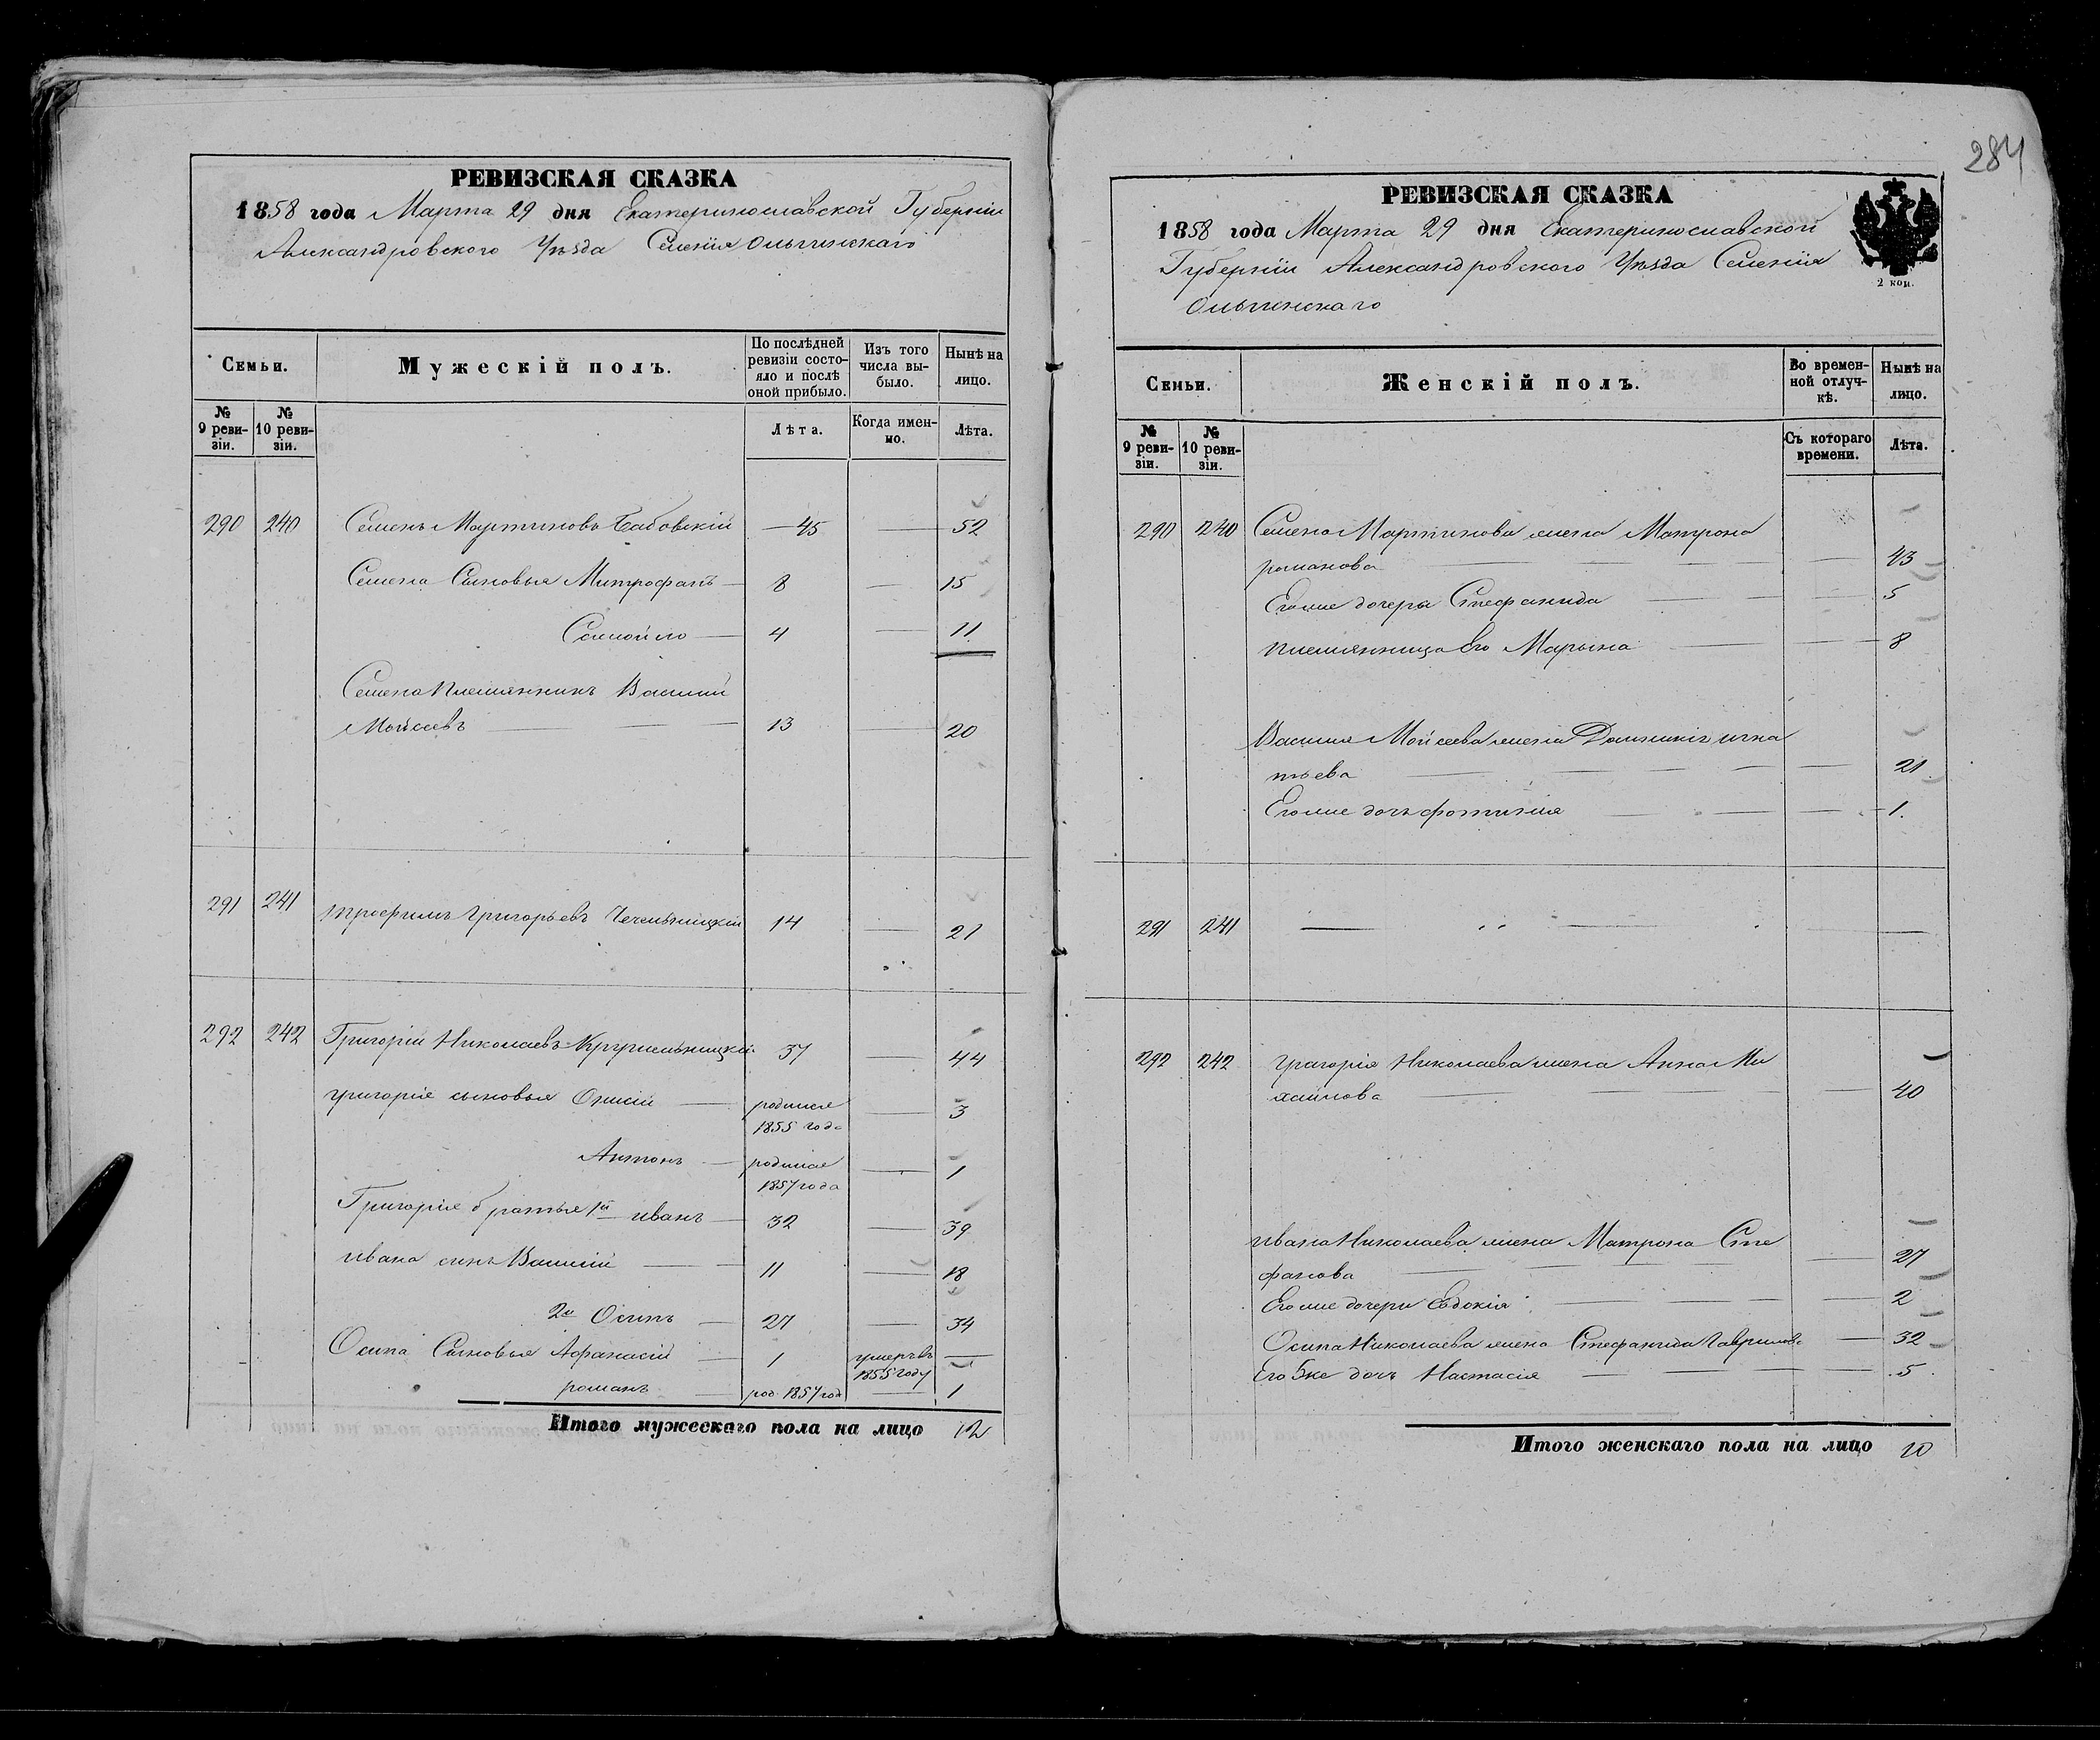 РЕВИЗСКАЯ СКАЗКА
1858 года Марта 29 дня Екатеринославской Губерніи
Александровского Уѣзда Селенія Ольгинскаго
Семьи.
Мужескій полъ.
По послѣдней ревизіи состояло и послѣ оной прибыло.
Изъ того числа выбыло.
Нынѣ на лицо.
№ 9 ревизіи.
№ 10 ревизіи.
Лѣта.
Когда именно.
Лѣта.
290 240 Семенъ Мартиновъ Бабовскій 45 52
Семена Сыновья Митрофанъ 8 15
Самойло 4 11
Семена племянникъ Василий
Мойсеевъ 13 20
291 241 трофимъ Григорьевъ Чечельницкій 14 21
292 242 Григорій Николаевъ Кругмельницкій 37 44
григорія сыновья Онисій родился 1855 года 3
Антонъ родился 1857 года 1
Григорія братья 1й иванъ 32 39
ивана сынъ Василій 11 18
2й Осипъ 27 34
Осипа Сыновья Афанасій 1 умеръ въ 1855 году
романъ род. 1857 год 1
Итого мужескаго пола на лицо 12
284
РЕВИЗСКАЯ СКАЗКА
1858 года Марта 29 дня Екатеринославской
Губерніи Александровского Уѣзда Селенія
Ольгинскаго
2 коп.
Семьи.
Женскій полъ.
Во временной отлучкѣ.
Нынѣ на лицо.
№ 9 ревизіи.
№ 10 ревизіи.
Съ котораго времени.
Лѣта.
290 240 Семена Мартинова жена Матрона
романова 43
Его же дочера Стефанида 5
племянница Его Марына 8
Василия Мойсеева жена Домникія игна
тьева 21
Его же дочь фотинія 1.
291 241
292 242 григорія Николаева жена Анна Ми
хайлова 40
ивана Николаева жена Матрона Сте
фанова 27
Его же дочери Евдокія 2
Осипа Николаева жена Стефанида Гаврилова 32
Его же дочь Настасія 5
Итого женскаго пола на лицо 10